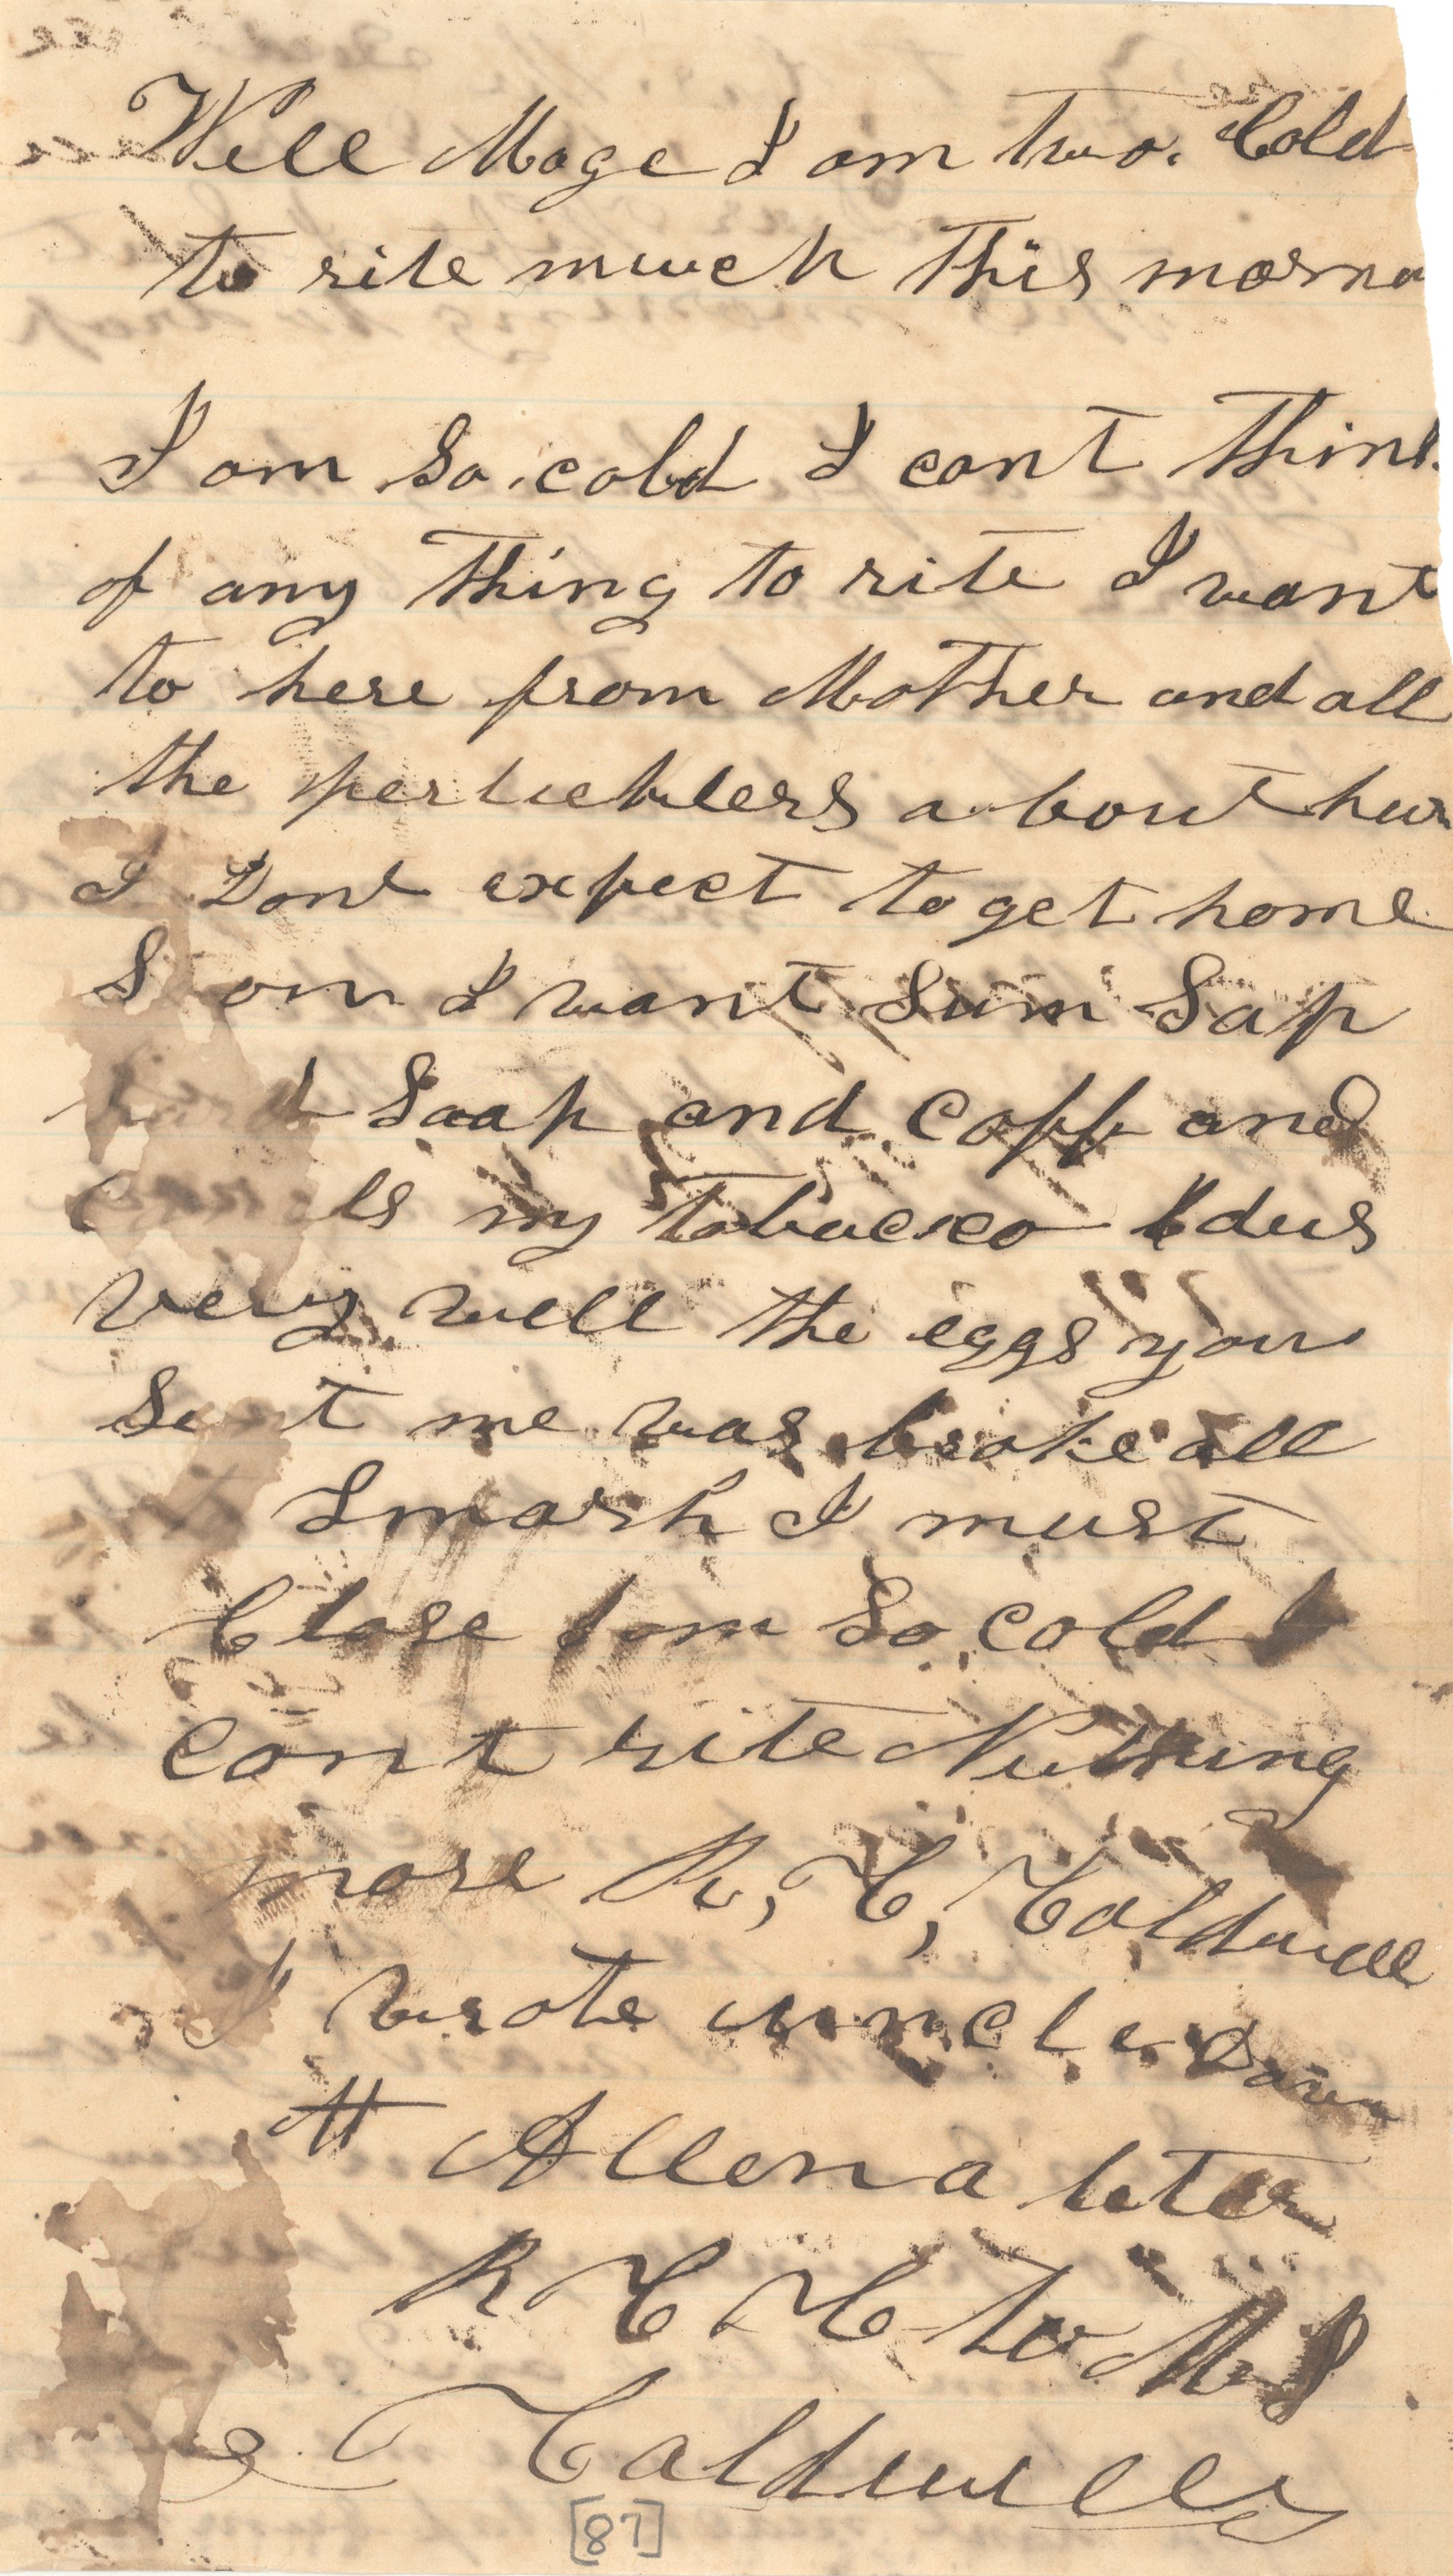 Well Mage I am two. Cold
to rite muuch This morna
I am So cold I cant think
of any Thing to rite I want
to here from Mother and all
the perticklers a bout hur
I Dont expect to get home
Soon I want Sum Sap
hard Soap and coff and
my tobacco dus
very well the eggs you
Sent me was broke all
Smash I must
Close I am So cold I
cant rite Nuthing
more R, C, Caldwell
I wrote uncle
Allen a leter
R C C to M J
Caldwell
[87]